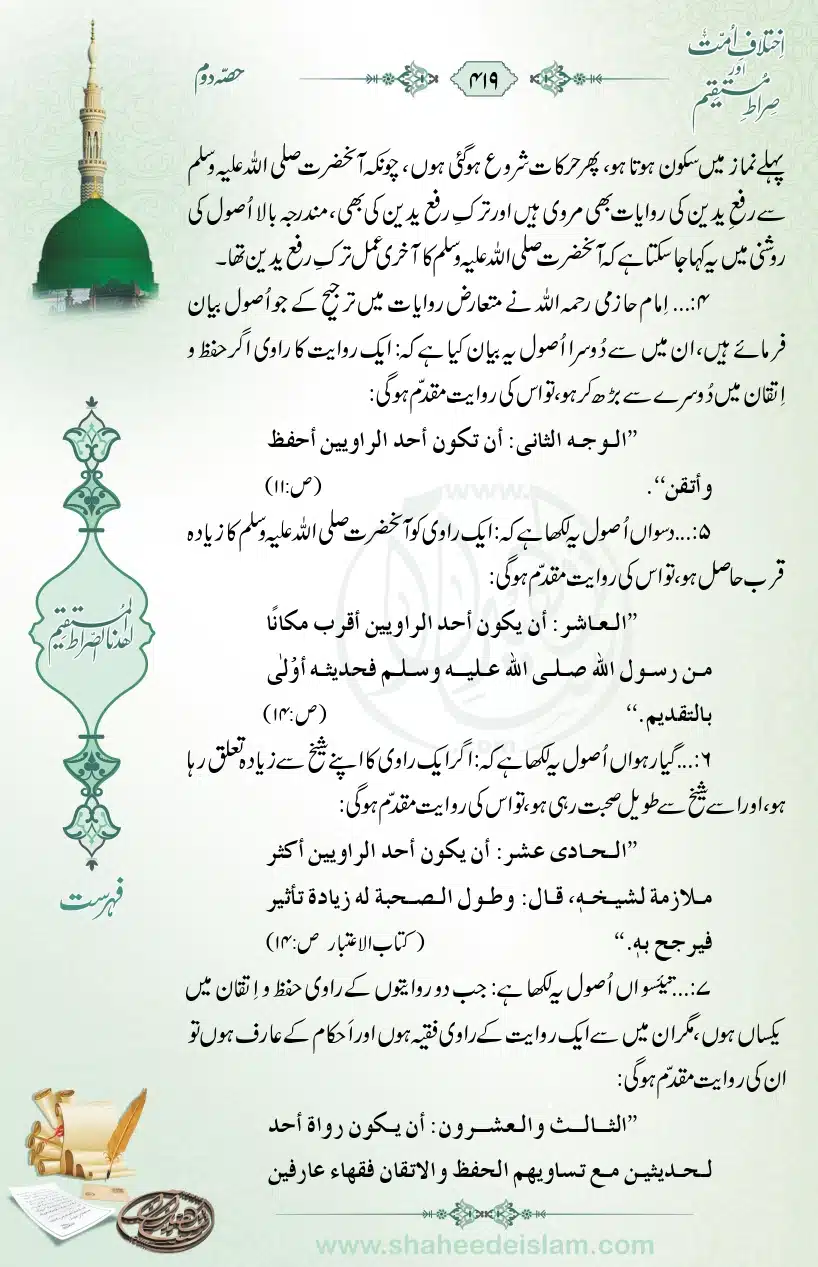 اِختلافِ اُمّت
اور
صِراطِ مُستقیم
۴۱۹
حصّہ دوم
پہلے نماز میں سکون ہوتا ہو، پھر حرکات شروع ہوگئی ہوں، چونکہ آنحضرت صلی اللہ علیہ وسلم
سے رفعِ یدین کی روایات بھی مروی ہیں اور ترکِ رفع یدین کی بھی، مندرجہ بالا اُصول کی
روشنی میں یہ کہا جاسکتا ہے کہ آنحضرت صلی اللہ علیہ وسلم کا آخری عمل ترکِ رفع یدین تھا۔
۴:... اِمام حازمی رحمہ اللہ نے متعارض روایات میں ترجیح کے جو اُصول بیان
فرمائے ہیں، ان میں سے دُوسرا اُصول یہ بیان کیا ہے کہ: ایک روایت کا راوی اگر حفظ و
اِتقان میں دُوسرے سے بڑھ کر ہو، تو اس کی روایت مقدّم ہوگی:
”الـوجـه الثانی: أن تكون أحد الراويين أحفظ
وأتقن“. (ص:۱۱)
۵:... دسواں اُصول یہ لکھا ہے کہ: ایک راوی کو آنحضرت صلی اللہ علیہ وسلم کا زیادہ
قرب حاصل ہو، تو اس کی روایت مقدّم ہوگی:
”العـاشر: أن يكون أحد الراويين أقرب مكانًا
مـن رسـول الله صلـى الله علـيـه وسلـم فحديثـه أوْلٰى
بالتقديم.“ (ص:۱۴)
۶:... گیارہواں اُصول یہ لکھا ہے کہ: اگر ایک راوی کا اپنے شیخ سے زیادہ تعلق رہا
ہو، اور اسے شیخ سے طویل صحبت رہی ہو، تو اس کی روایت مقدّم ہوگی:
”الـحـادی عشر: أن يكون أحد الراويين أكثر
مـلازمة لشيخـهٖ، قـال: وطـول الـصـحبة له زيادة تأثير
فيرجح بهٖ.“ (کتاب الاعتبار ص:۱۴)
۷:... تیئسواں اُصول یہ لکھا ہے: جب دو روایتوں کے راوی حفظ و اِتقان میں
یکساں ہوں، مگر ان میں سے ایک روایت کے راوی فقیہ ہوں اور اَحکام کے عارف ہوں تو
ان کی روایت مقدّم ہوگی:
”الثـالـــث والـعشــرون: أن يـكـون رواة أحد
لـحـديثيـن مـع تساويهم الحفظ والاتقان فقهاء عارفين
اهدنا الصراط المستقيم
فہرست
www.shaheedeislam.com